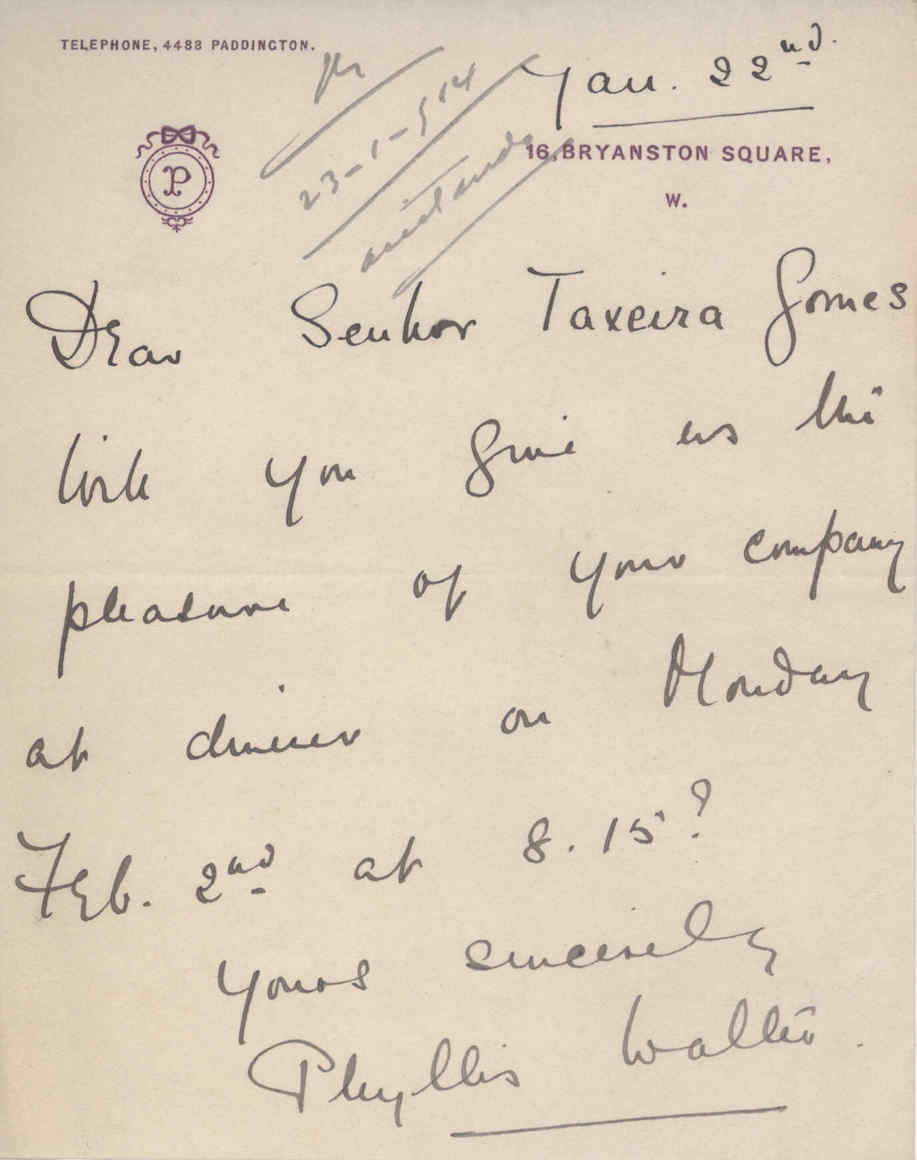 TELEPHONE, 4483 PADDINGTON.
Jan. 22nd.
23-1-914
P
16, BRYANSTON SQUARE,
W.
Dear Senhor Taxeira Gomes
Will you give us the
pleasure of your company
at dinner on Monday
Feb. 2nd at 8.15?
Yours sincerely
Phyllis Walter.